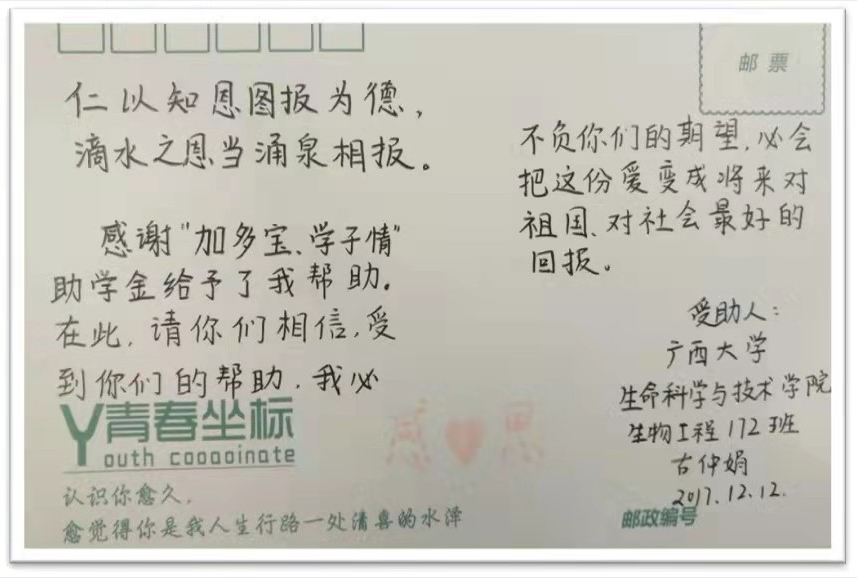 邮票
仁以知恩图报为德，
滴水之恩当涌泉相报。
感谢“加多宝、学子情”
助学金给予了我帮助。
在此，请你们相信，受
到你们的帮助，我必
不负你们的期望，必会
把这份爱变成将来对
祖国、对社会最好的
回报。
受助人：
广西大学
生命科学与技术学院
生物工程172班
古仲娟
2017.12.12.
Y青春坐标
outh cooooinate
感恩
认识你愈久，
愈觉得你是我人生行路一处清喜的水泽
邮政编号